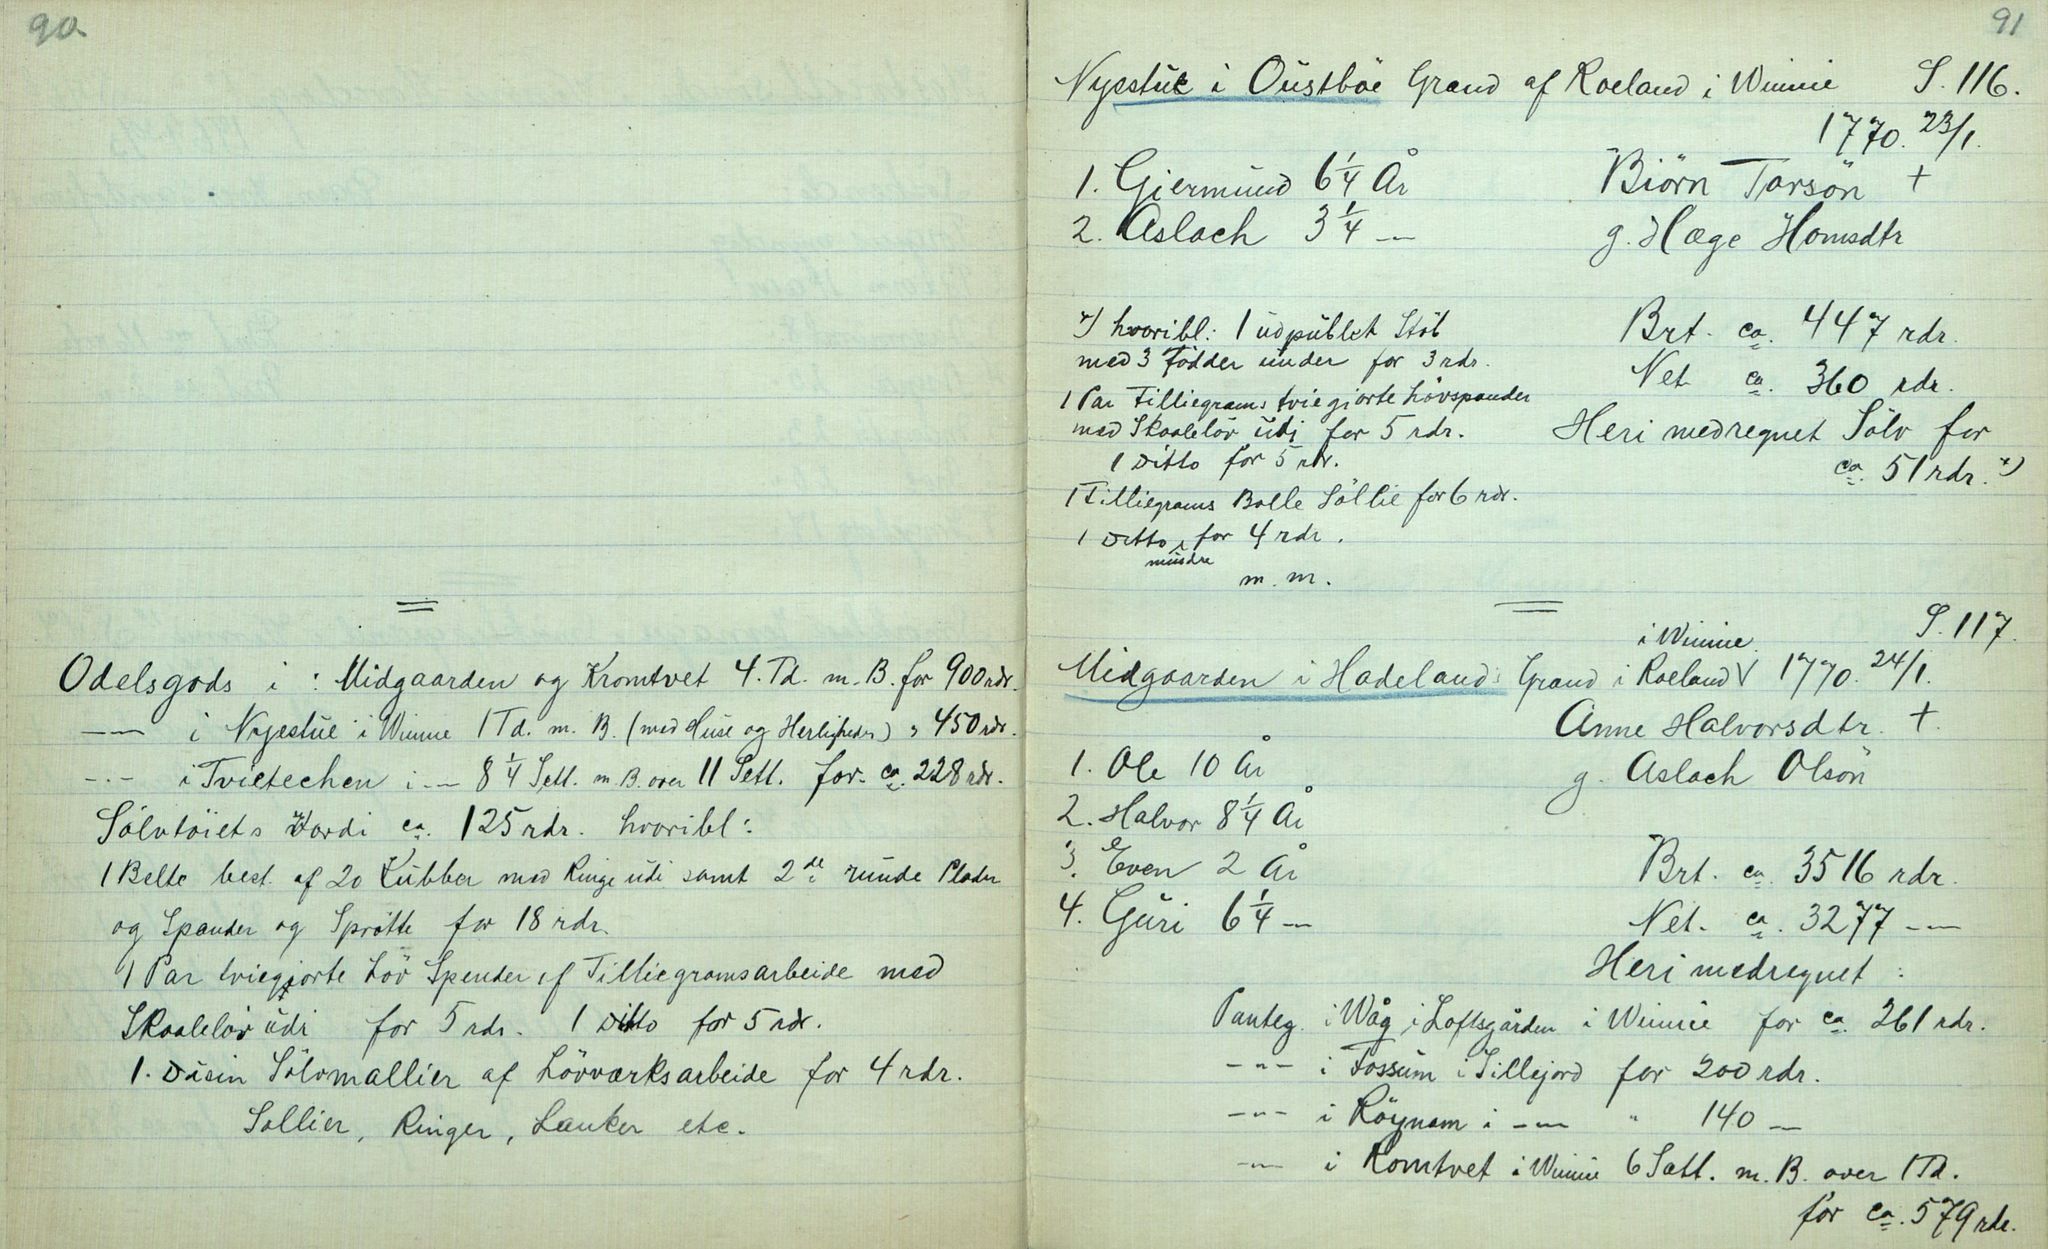 90.
Odelsgods i : Midgaarden og Kromtvet 4. Td. m. B. for 900 rdr.
—"— i Nyestúe i Winnie 1 Td. m. B. (med Húse og Herligheder) " 450 rdr.
—"— i Tvietechen i —"— 8 1/4 Setl. m. B. over 11 Setl. for ca. 228 rdr.
Sölvtöiets Værdi ca. 125 rdr. hvoribl:
1 Belte best. af 20 Kúbber med Ringe udi samt 2de rúnde Plader
og Spænder og Sprötte for 18 rdr.
1 Par tviegjorte Löv Spender af Filliegramsarbeide med
Skaalelöv údi for 5 rdr. 1 Ditto for 5 rdr.
1. Dúsin Sölvmallier af Lövværksarbeide for 4 rdr.
Söllier, Ringer, Lænker etc.
91
Nyestúe i Oústböe Grænd af Roeland i Winnie S. 116.
1770. 23/1.
1. Giermúnd 6 1/4 År
Biörn Tarsön +
2. Aslach 3 1/4 —"—
g. Hæge Homsdtr
x) hvoribl: 1 údpúblet Stöb
med 3 Födder únder for 3 rdr.
1 Par Filliegrams tviegiorte Lövspænder
med Skaalelöv údi for 5 rdr.
1 Ditto for 5 rdr.
1 Filliegrams Bolle Söllie for 6 rdr.
1 Ditto mindre for 4 rdr.
m. m.
Brt. ca. 447 rdr.
Net ca. 360 rdr.
Heri medregnet Sölv for
ca. 51 rdr. x)
S. 117.
Midgaarden i Hadeland: Grænd i Roeland i Winnie. 1770. 24/1.
Anne Halvorsdtr. +.
1. Ole 10 År
g. Aslach Olsön
2. Halvor 8 1/4 År
3. Even 2 År
4. Gúri 6 1/4 —"—
Brt. ca. 3516 rdr.
Net. ca. 3277 —"—
Heri medregnet :
Panteg. i Wåg i Loftsgården i Winnie for ca. 261 rdr.
—"— i Fossúm i Sillejord for 200 rdr.
—"— i Röynam i —"— " 140 —"—
—"— i Romtvet i Winnie 6 Sætt. m. B. over 1 Td.
for ca. 579 rdr.